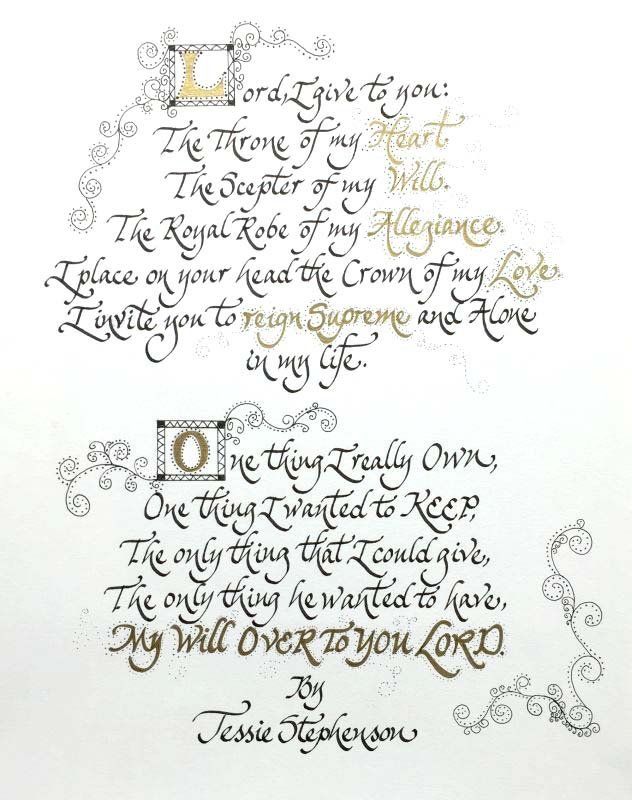 Lord, I give to you:
The Throne of my Heart
The Scepter of my Will.
The Royal Robe of my Allegiance.
I place on your head the Crown of my Love
I invite you to reign Supreme and Alone
in my life.
One thing I really Own,
One thing I wanted to KEEP,
The only thing that I could give,
The only thing he wanted to have,
My Will OVER To YOU LORD.
By
Tessie Stephenson